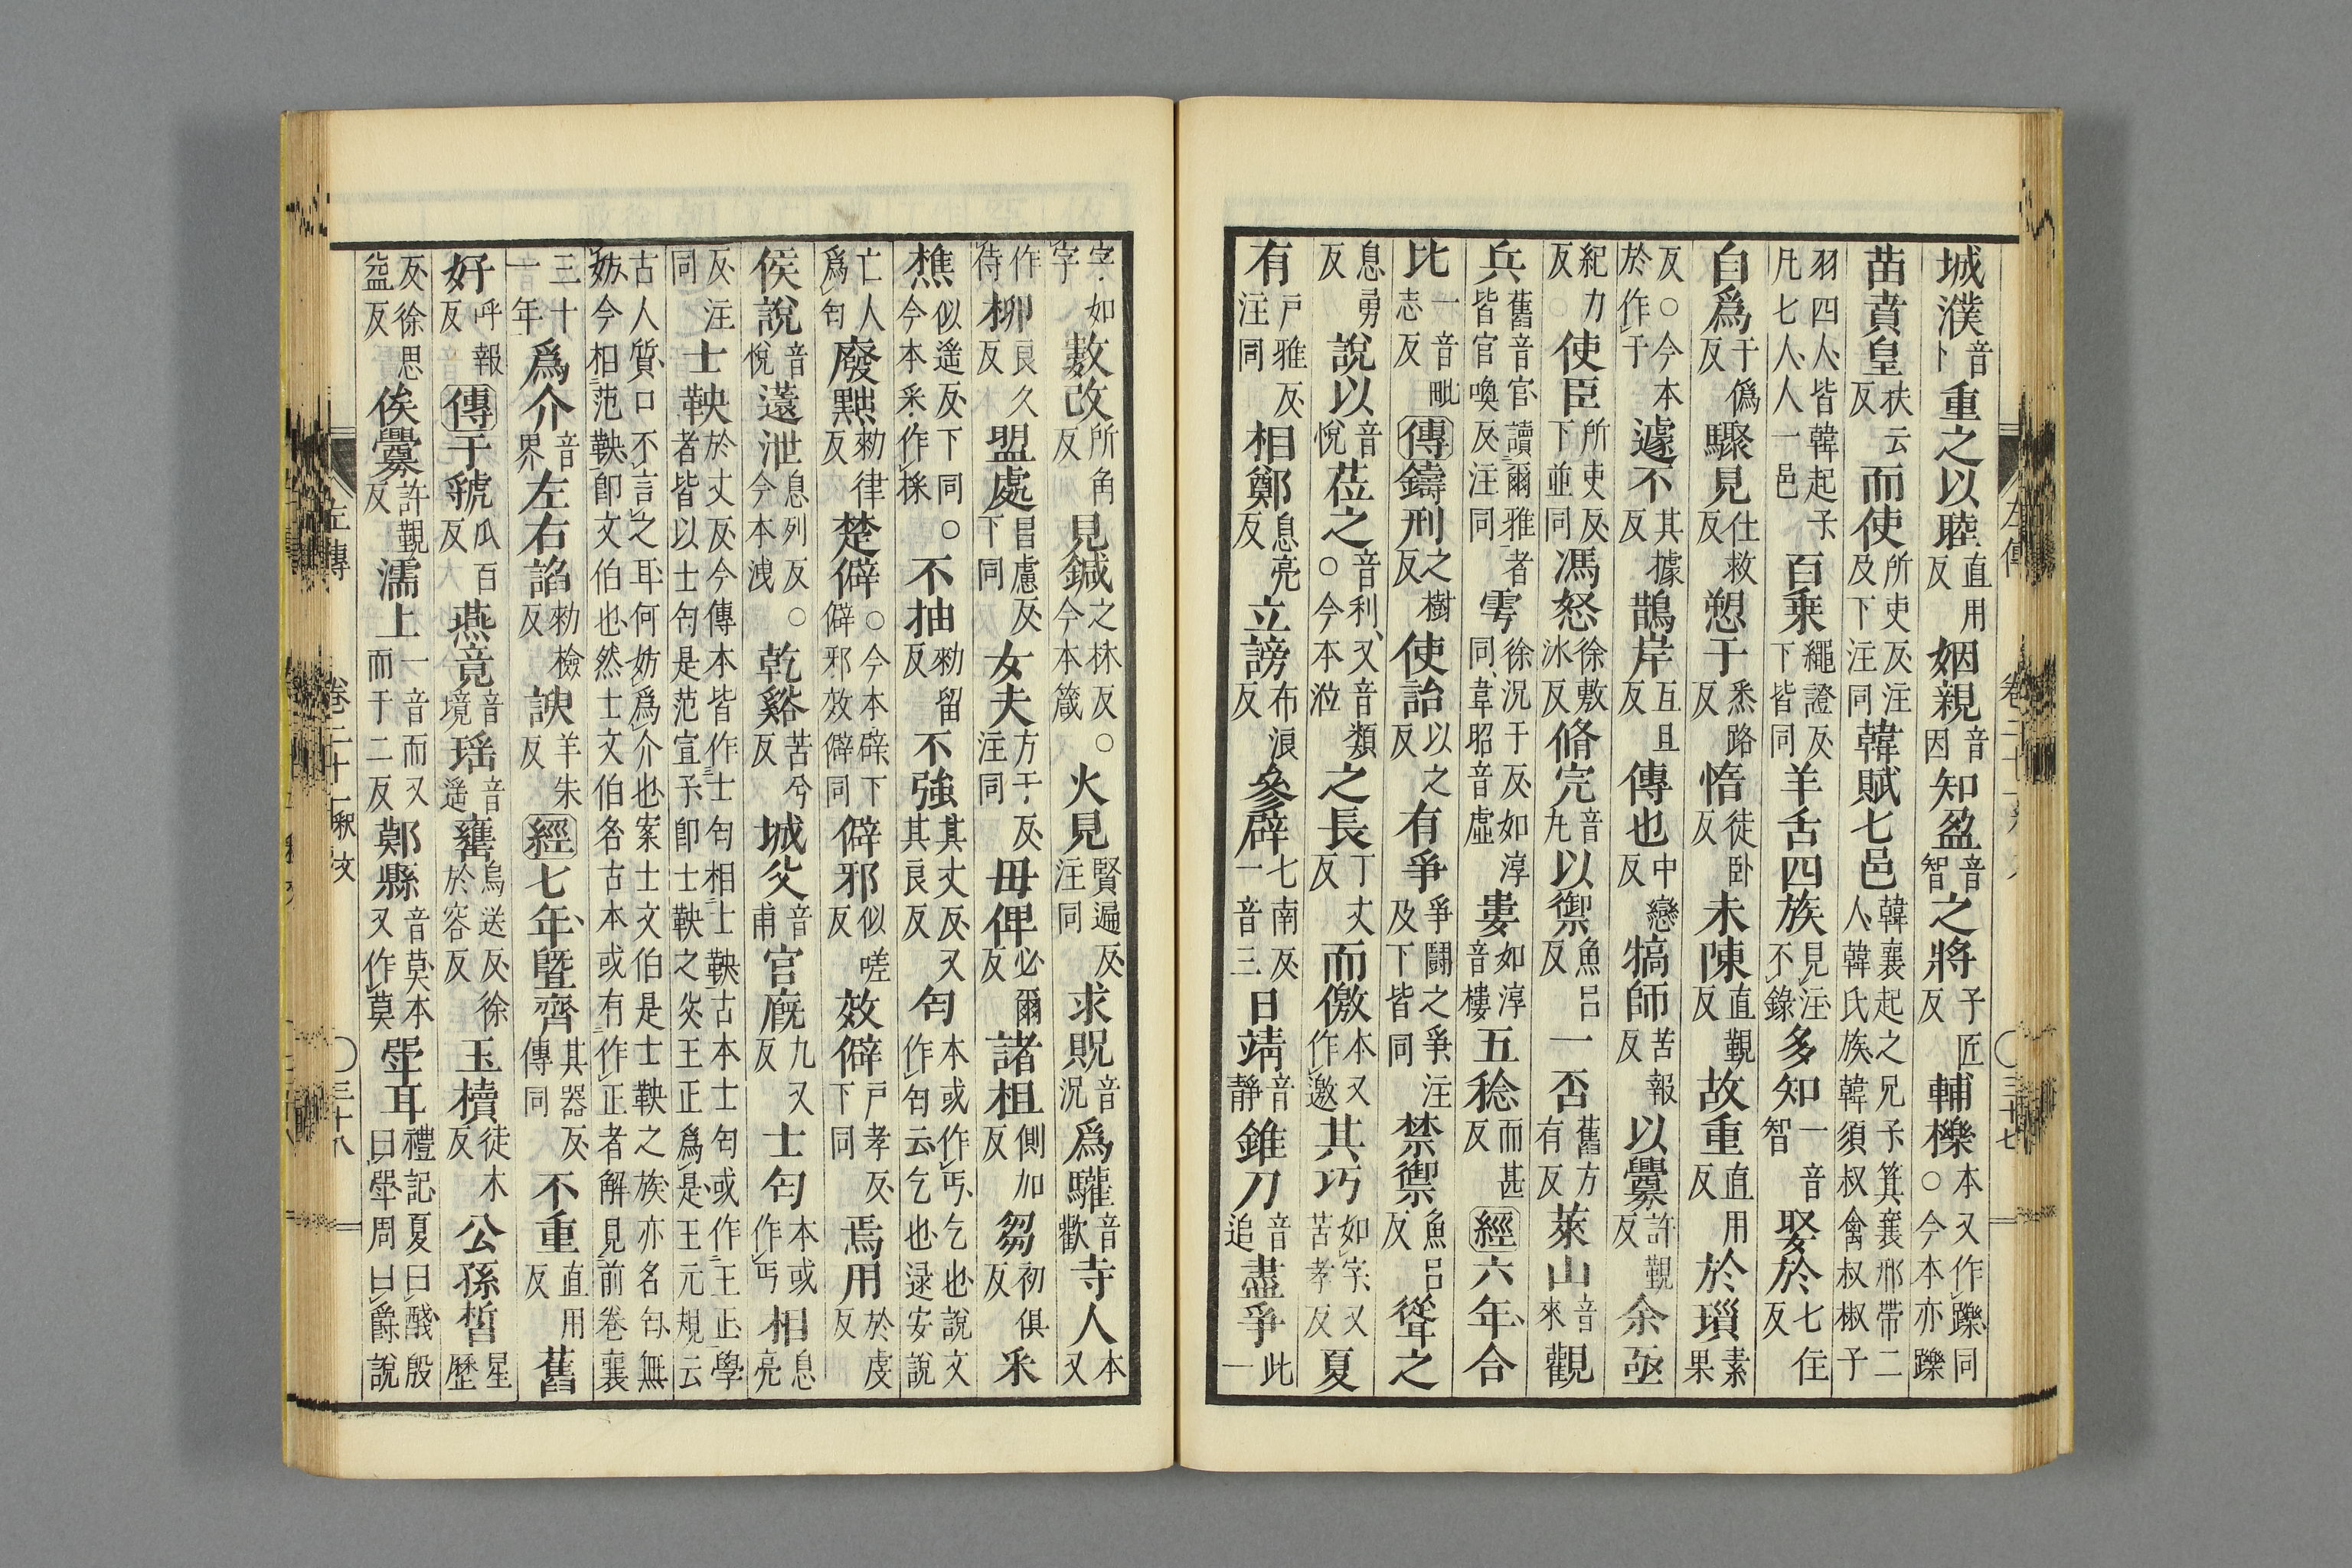 城濮音卜重之以睦直用反姻親音因知盈音智之將子匠反輔櫟本又作躒同○今本亦躒
苗賁皇扶云反而使所吏反注及下注同韓賦七邑韓襄起之兄子箕襄邢帶二人韓氏族韓須叔禽叔椒子
羽四人皆韓起子凡七人人一邑百乗繩證反下皆同羊舌四族見注不錄多知一音智娶於七住反
自爲于僞反驟見仕救反愬于悉路反惰徒卧反未陳直覲反故重直用反於瑣素果
反○今本於作于遽不其據反鵲岸五旦反傳也中戀反犒師苦報反以釁許覲反余亟
紀力反使臣所吏反下並同馮怒徐敷冰反脩完音丸以禦魚呂反一否舊方有反萊山音來觀
兵舊音官讀爾雅者皆官喚反注同雩徐況于反如淳同韋昭音虛婁如淳音樓五稔而甚反經六年合
比一音毗志反傳鑄刑之樹反使詒以之反有爭爭鬭之爭注及下皆同禁禦魚呂反聳之
息勇反說以音悅莅之音利又音類○今本涖之長丁丈反而儌本又作邀其巧如字又苦孝反夏
有戶雅反注同相鄭息亮反立謗布浪反參辟七南反一音三日靖音靜錐刀音追盡爭此一
左傳 卷二十一釋文 ○三十七
字如字數改所角反見鍼之林反○今本箴火見賢遍反注同求貺音況爲驩音歡寺人本又
作侍柳良久反盟處昌慮反下同女夫方于反注同毋俾必爾反諸柤側加反芻初俱反釆
樵似遙反下同○今本釆作採不抽勑留反不強其丈反又其良反匄本或作丐乞也說文作匄云乞也逯安說
亡人爲匄廢黜勑律反楚僻○今本辟下僻邪效僻同僻邪似嗟反效僻戶孝反下同焉用於虔反
侯說音悅薳泄息列反○今本洩乾谿苦兮反城父音甫官廐九又反士匄本或作丐相息亮
反注同士鞅於丈反今傳本皆作士匄相士鞅古本士匄或作王正學者皆以士匄是范宣子即士鞅之父王正爲是王元規云
古人質口不言之耳何妨爲介也案士文伯是士鞅之族亦名匄無妨今相范鞅即文伯也然士文伯名古本或有作正者解見前卷襄
三十一年爲介音界左右諂勑檢反諛羊朱反經七年曁齊其器反傳同不重直用反舊
好呼報反傳于虢瓜百反燕竟音境瑤音遙罋烏送反徐於容反玉櫝徒木反公孫晳星歷
反徐思益反俟釁許覲反濡上一音而又而于二反鄭縣音莫本又作莫斝耳禮記夏曰醆殷曰斝周曰爵說
左傳 卷二十一釋文 ○三十八